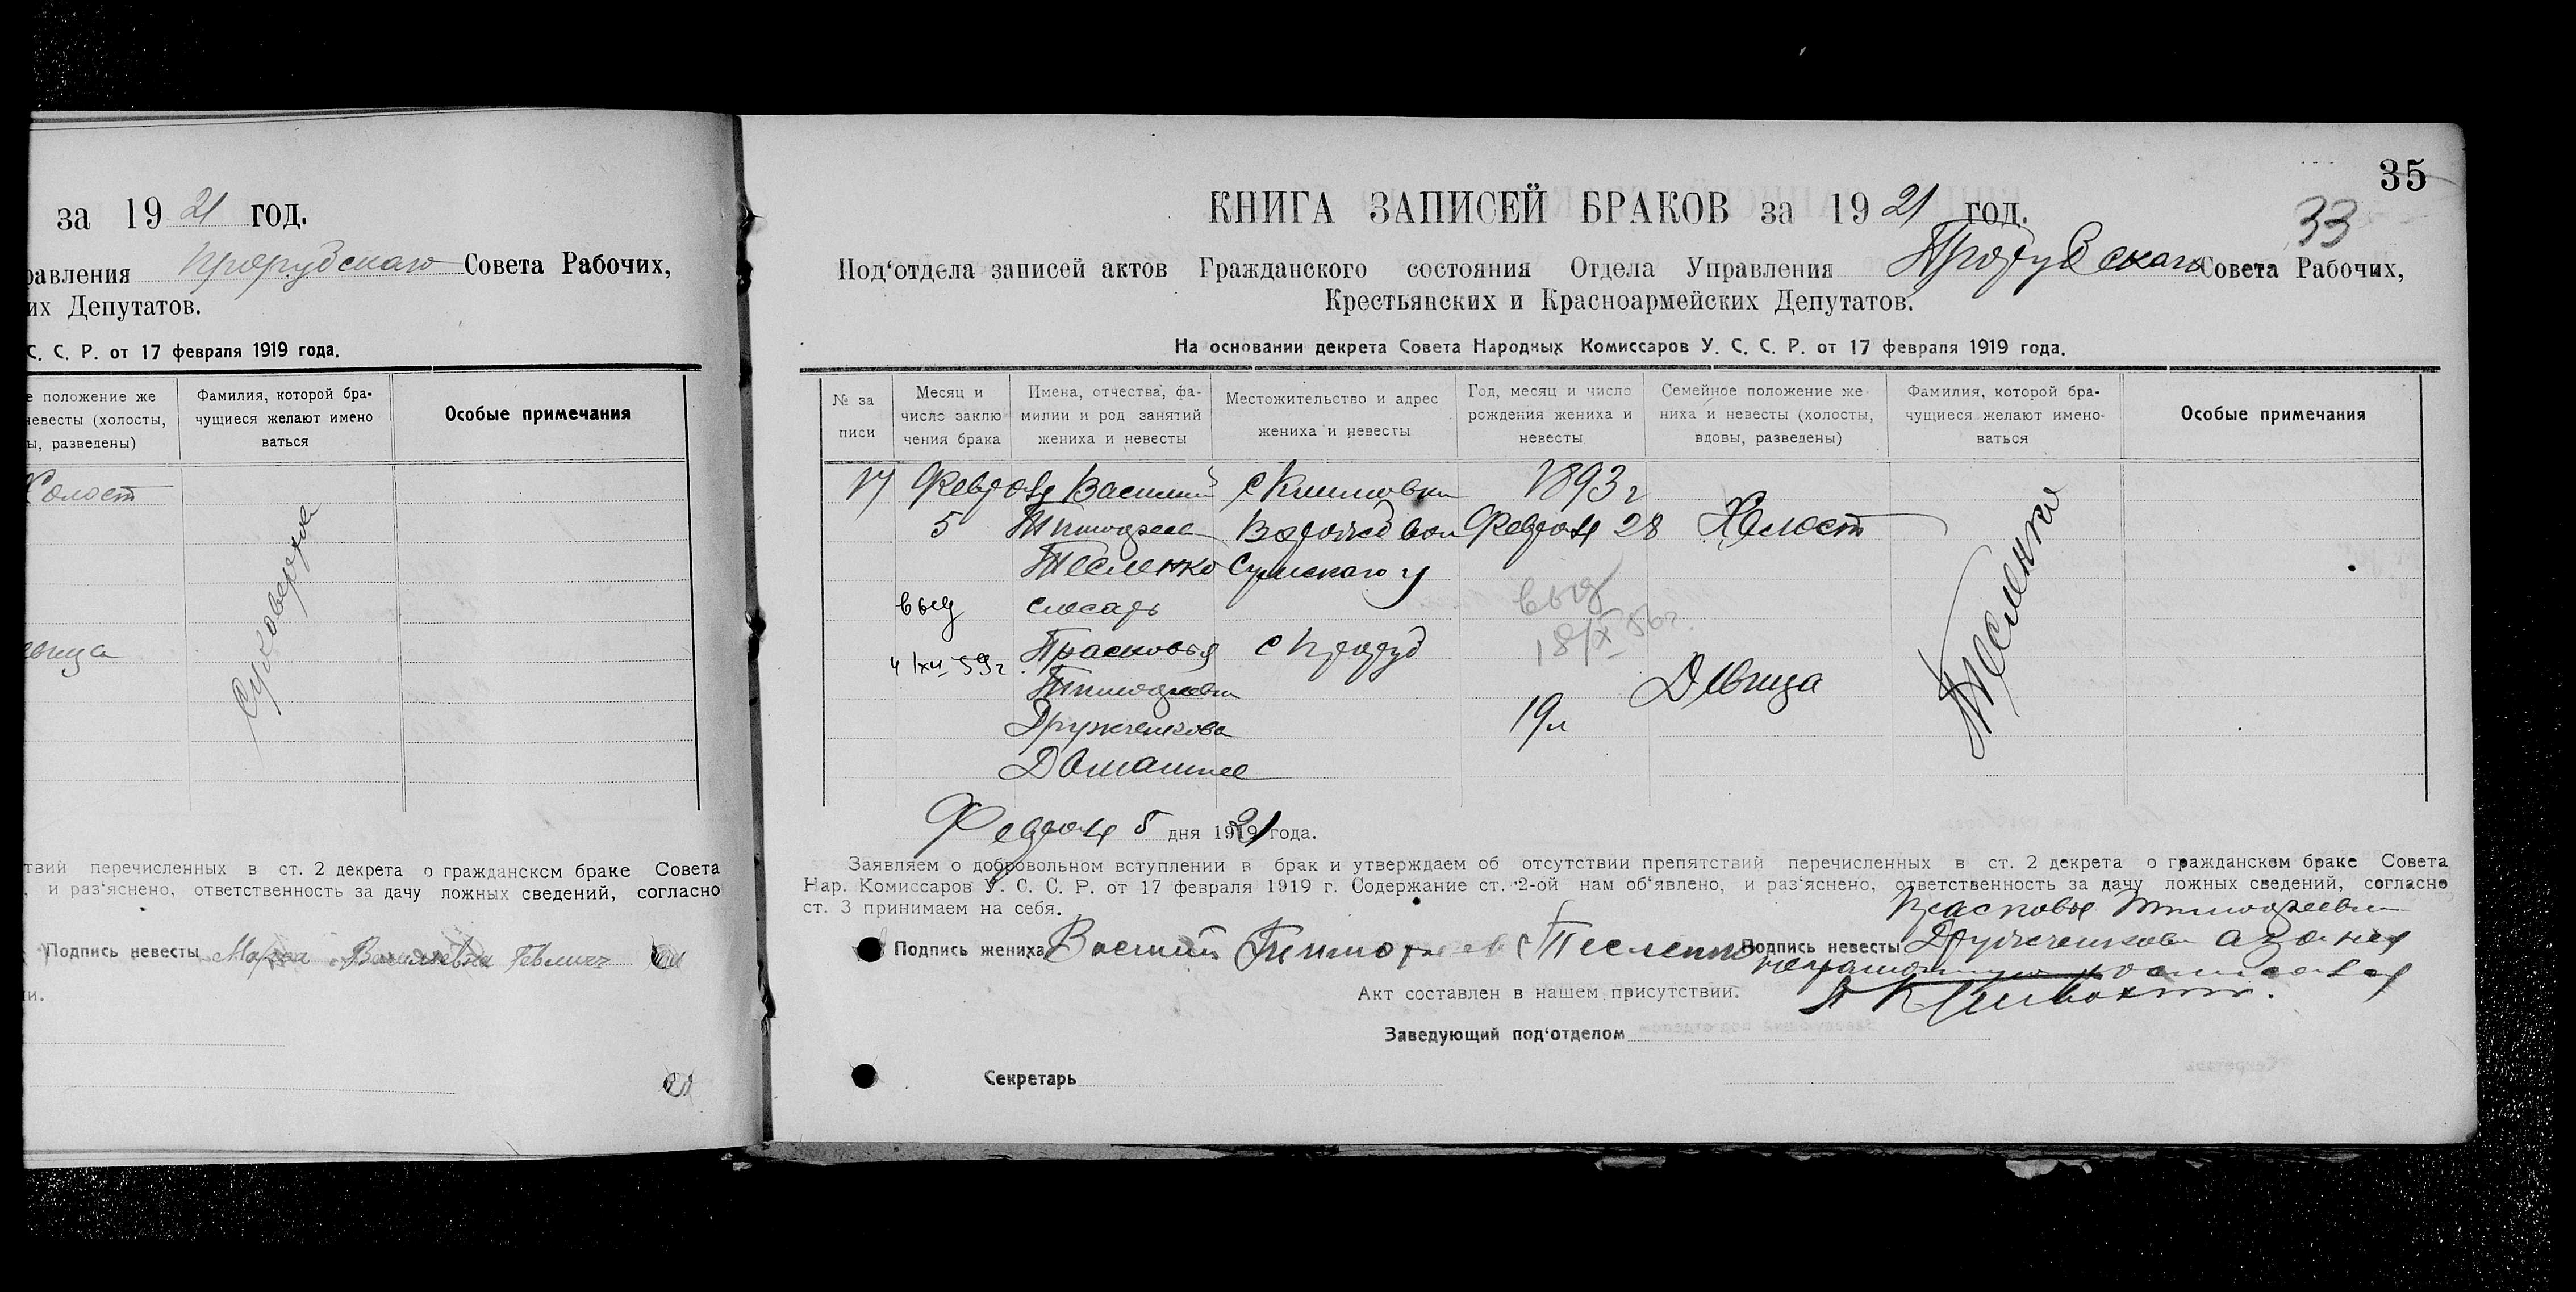 за 1921 год.
равления Прорубскаго Совета Рабочих,
их Депутатов.
С. С. Р. от 17 февраля 1919 года.
е положение же
невесты (холосты,
ы, разведены)
Фамилия, которой бра-
чущиеся желают имено
ваться
Особые примечания
Холост
вица
Суховерхова
твий перечисленных в ст. 2 декрета о гражданском браке Совета
, и раз'яснено, ответственность за дачу ложных сведений, согласно
Подпись невесты Марфа Васильевна
и.
35
33
КНИГА ЗАПИСЕЙ БРАКОВ за 1921 год.
Под'отдела записей актов Гражданского состояния Отдела Управления Прорубскаго Совета Рабочих,
Крестьянских и Красноармейских Депутатов.
На основании декрета Совета Народных Комиссаров У. С. С. Р. от 17 февраля 1919 года.
№ за
писи
Месяц и
число заклю
чения брака
Имена, отчества, фа-
милии и род занятий
жениха и невесты
Местожительство и адрес
жениха и невесты
Год, месяц и число
рождения жениха и
невесты
Семейное положение же-
ниха и невесты (холосты,
вдовы, разведены)
Фамилия, которой бра-
чущиеся желают имено-
ваться
Особые примечания
17 Февраля Василий с 1893 г
5 Тимофеев вол Февраля 28 Холост
Тесленко Сумскаго у
выд слесарь выд
18/X 56г.
4/XII 59г. Прасковья с Проруб
Тимофеевна Девица
Дружченкова 19л
Домашнее
Тесленко
Февраля 5 дня 1921 года.
Заявляем о добровольном вступлении в брак и утверждаем об отсутствии препятствий перечисленных в ст. 2 декрета о гражданском браке Совета
Нар. Комиссаров У. С. С. Р. от 17 февраля 1919 г. Содержание ст. 2-ой нам об'явлено, и раз'яснено, ответственность за дачу ложных сведений, согласно
ст. 3 принимаем на себя.
Прасковья Тимофеевна
Подпись жениха Василий Тимофеев Тесленко Подпись невесты Дружченкова а за нея
неграмотную росписался
Акт составлен в нашем присутствии.
Заведующий под'отделом
Секретарь